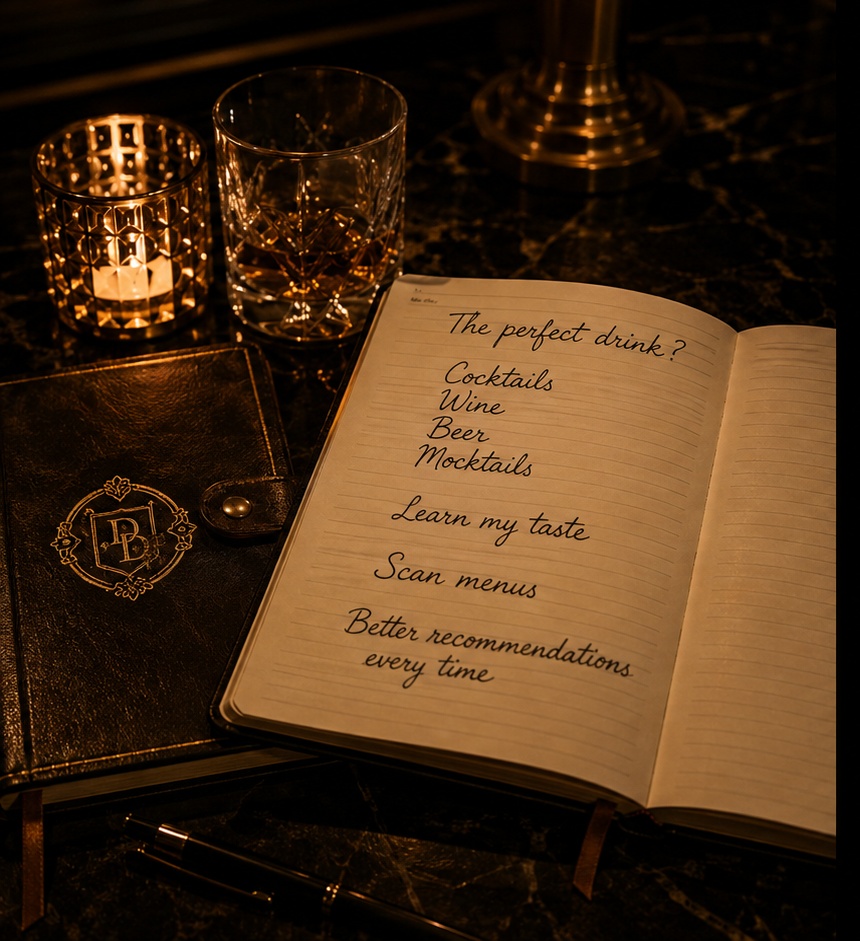 The perfect drink?
Cocktails
Wine
Beer
Mocktails
Learn my taste
Scan menus
Better recommendations
every time